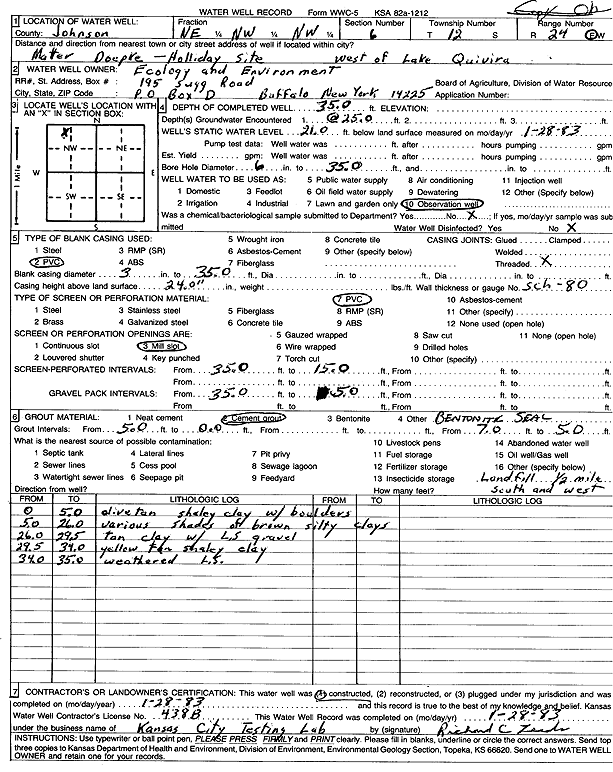 WATER WELL RECORD Form WWC-5 KSA 82a-1212
1 LOCATION OF WATER WELL: Fraction Section Number Township Number Range Number
County: Johnson NE ¼ NW ¼ NW ¼ 6 T 12 S R 24 EW
Distance and direction from nearest town or city street address of well if located within city?
Mater Doupke - Holliday Site west of Lake Quivira
2 WATER WELL OWNER: Ecology and Environment
RR#, St. Address, Box # : 195 Sugg Road Board of Agriculture, Division of Water Resource
City, State, ZIP Code : P.O Box D Buffalo New York 14225 Application Number:
3 LOCATE WELL'S LOCATION WITH AN "X" IN SECTION BOX:
N
X
NW NE
W E
SW SE
S
1 Mile
4 DEPTH OF COMPLETED WELL 35.0 ft. ELEVATION:
Depth(s) Groundwater Encountered 1. @25.0 ft. 2. ft. 3. ft.
WELL'S STATIC WATER LEVEL 21.0 ft. below land surface measured on mo/day/yr 1-28-83
Pump test data: Well water was ft. after hours pumping gpm
Est. Yield gpm: Well water was ft. after hours pumping gpm
Bore Hole Diameter 6 in. to 35.0 ft., and in. to ft.
WELL WATER TO BE USED AS: 5 Public water supply 8 Air conditioning 11 Injection well
1 Domestic 3 Feedlot 6 Oil field water supply 9 Dewatering 12 Other (Specify below)
2 Irrigation 4 Industrial 7 Lawn and garden only 10 Observation well
Was a chemical/bacteriological sample submitted to Department? Yes No X ; If yes, mo/day/yr sample was sub
mitted Water Well Disinfected? Yes No X
5 TYPE OF BLANK CASING USED: 5 Wrought iron 8 Concrete tile CASING JOINTS: Glued Clamped
1 Steel 3 RMP (SR) 6 Asbestos-Cement 9 Other (specify below) Welded
2 PVC 4 ABS 7 Fiberglass Threaded X
Blank casing diameter 3 in. to 35.0 ft., Dia in. to ft., Dia in. to ft.
Casing height above land surface 24.0" in., weight lbs./ft. Wall thickness or gauge No. sch-80
TYPE OF SCREEN OR PERFORATION MATERIAL: 7 PVC 10 Asbestos-cement
1 Steel 3 Stainless steel 5 Fiberglass 8 RMP (SR) 11 Other (specify)
2 Brass 4 Galvanized steel 6 Concrete tile 9 ABS 12 None used (open hole)
SCREEN OR PERFORATION OPENINGS ARE: 5 Gauzed wrapped 8 Saw cut 11 None (open hole)
1 Continuous slot 3 Mill slot 6 Wire wrapped 9 Drilled holes
2 Louvered shutter 4 Key punched 7 Torch cut 10 Other (specify)
SCREEN-PERFORATED INTERVALS: From 35.0 ft. to 15.0 ft., From ft. to ft.
From ft. to ft., From ft. to ft.
GRAVEL PACK INTERVALS: From 35.0 ft. to 5.0 ft., From ft. to ft.
From ft. to ft., From ft. to ft.
6 GROUT MATERIAL: 1 Neat cement 2 Cement grout 3 Bentonite 4 Other BENTONITE SEAL
Grout Intervals: From 5.0 ft. to 0.0 ft., From ft. to ft., From 7.0 ft. to 5.0 ft.
What is the nearest source of possible contamination: 10 Livestock pens 14 Abandoned water well
1 Septic tank 4 Lateral lines 7 Pit privy 11 Fuel storage 15 Oil well/Gas well
2 Sewer lines 5 Cess pool 8 Sewage lagoon 12 Fertilizer storage 16 Other (specify below)
3 Watertight sewer lines 6 Seepage pit 9 Feedyard 13 Insecticide storage Landfill 1/2 mile
Direction from well? How many feet? South and West
FROM TO LITHOLOGIC LOG FROM TO LITHOLOGIC LOG
0 5.0 olive tan shaley clay w/ boulders
5.0 26.0 various shads of brown silty clays
26.0 29.5 tan clay w/ LS gravel
29.5 34.0 yellow tan shaley clay
34.0 35.0 weathered L.S.
7 CONTRACTOR'S OR LANDOWNER'S CERTIFICATION: This water well was (1) constructed, (2) reconstructed, or (3) plugged under my jurisdiction and was
completed on (mo/day/year) 1-28-83 and this record is true to the best of my knowledge and belief. Kansas
Water Well Contractor's License No. 438B This Water Well Record was completed on (mo/day/yr) 1-28-83
under the business name of Kansas City Testing Lab by (signature) Richard C
INSTRUCTIONS: Use typewriter or ball point pen, PLEASE PRESS FIRMLY and PRINT clearly. Please fill in blanks, underline or circle the correct answers. Send top
three copies to Kansas Department of Health and Environment, Division of Environment, Environmental Geology Section, Topeka, KS 66620. Send one to WATER WELL
OWNER and retain one for your records.